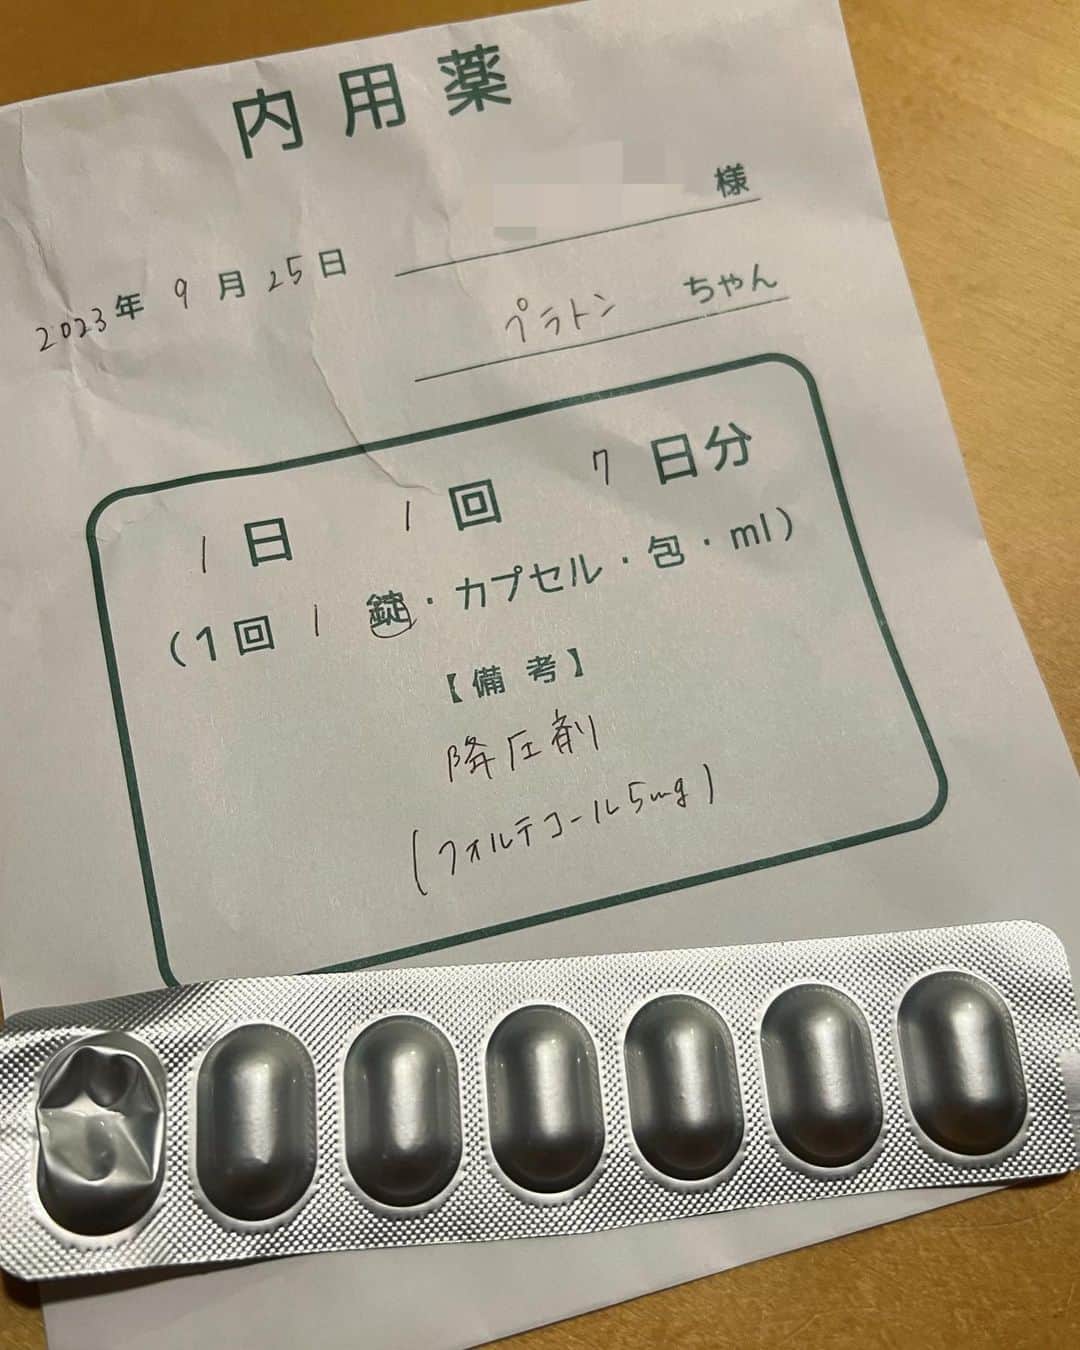 内用薬
様
2023年 9月 25日
プラトン ちゃん
1日 1回 7日分
(1回 1 錠・カプセル・包・ml)
【備考】
降圧剤
(フォルテコール5mg)